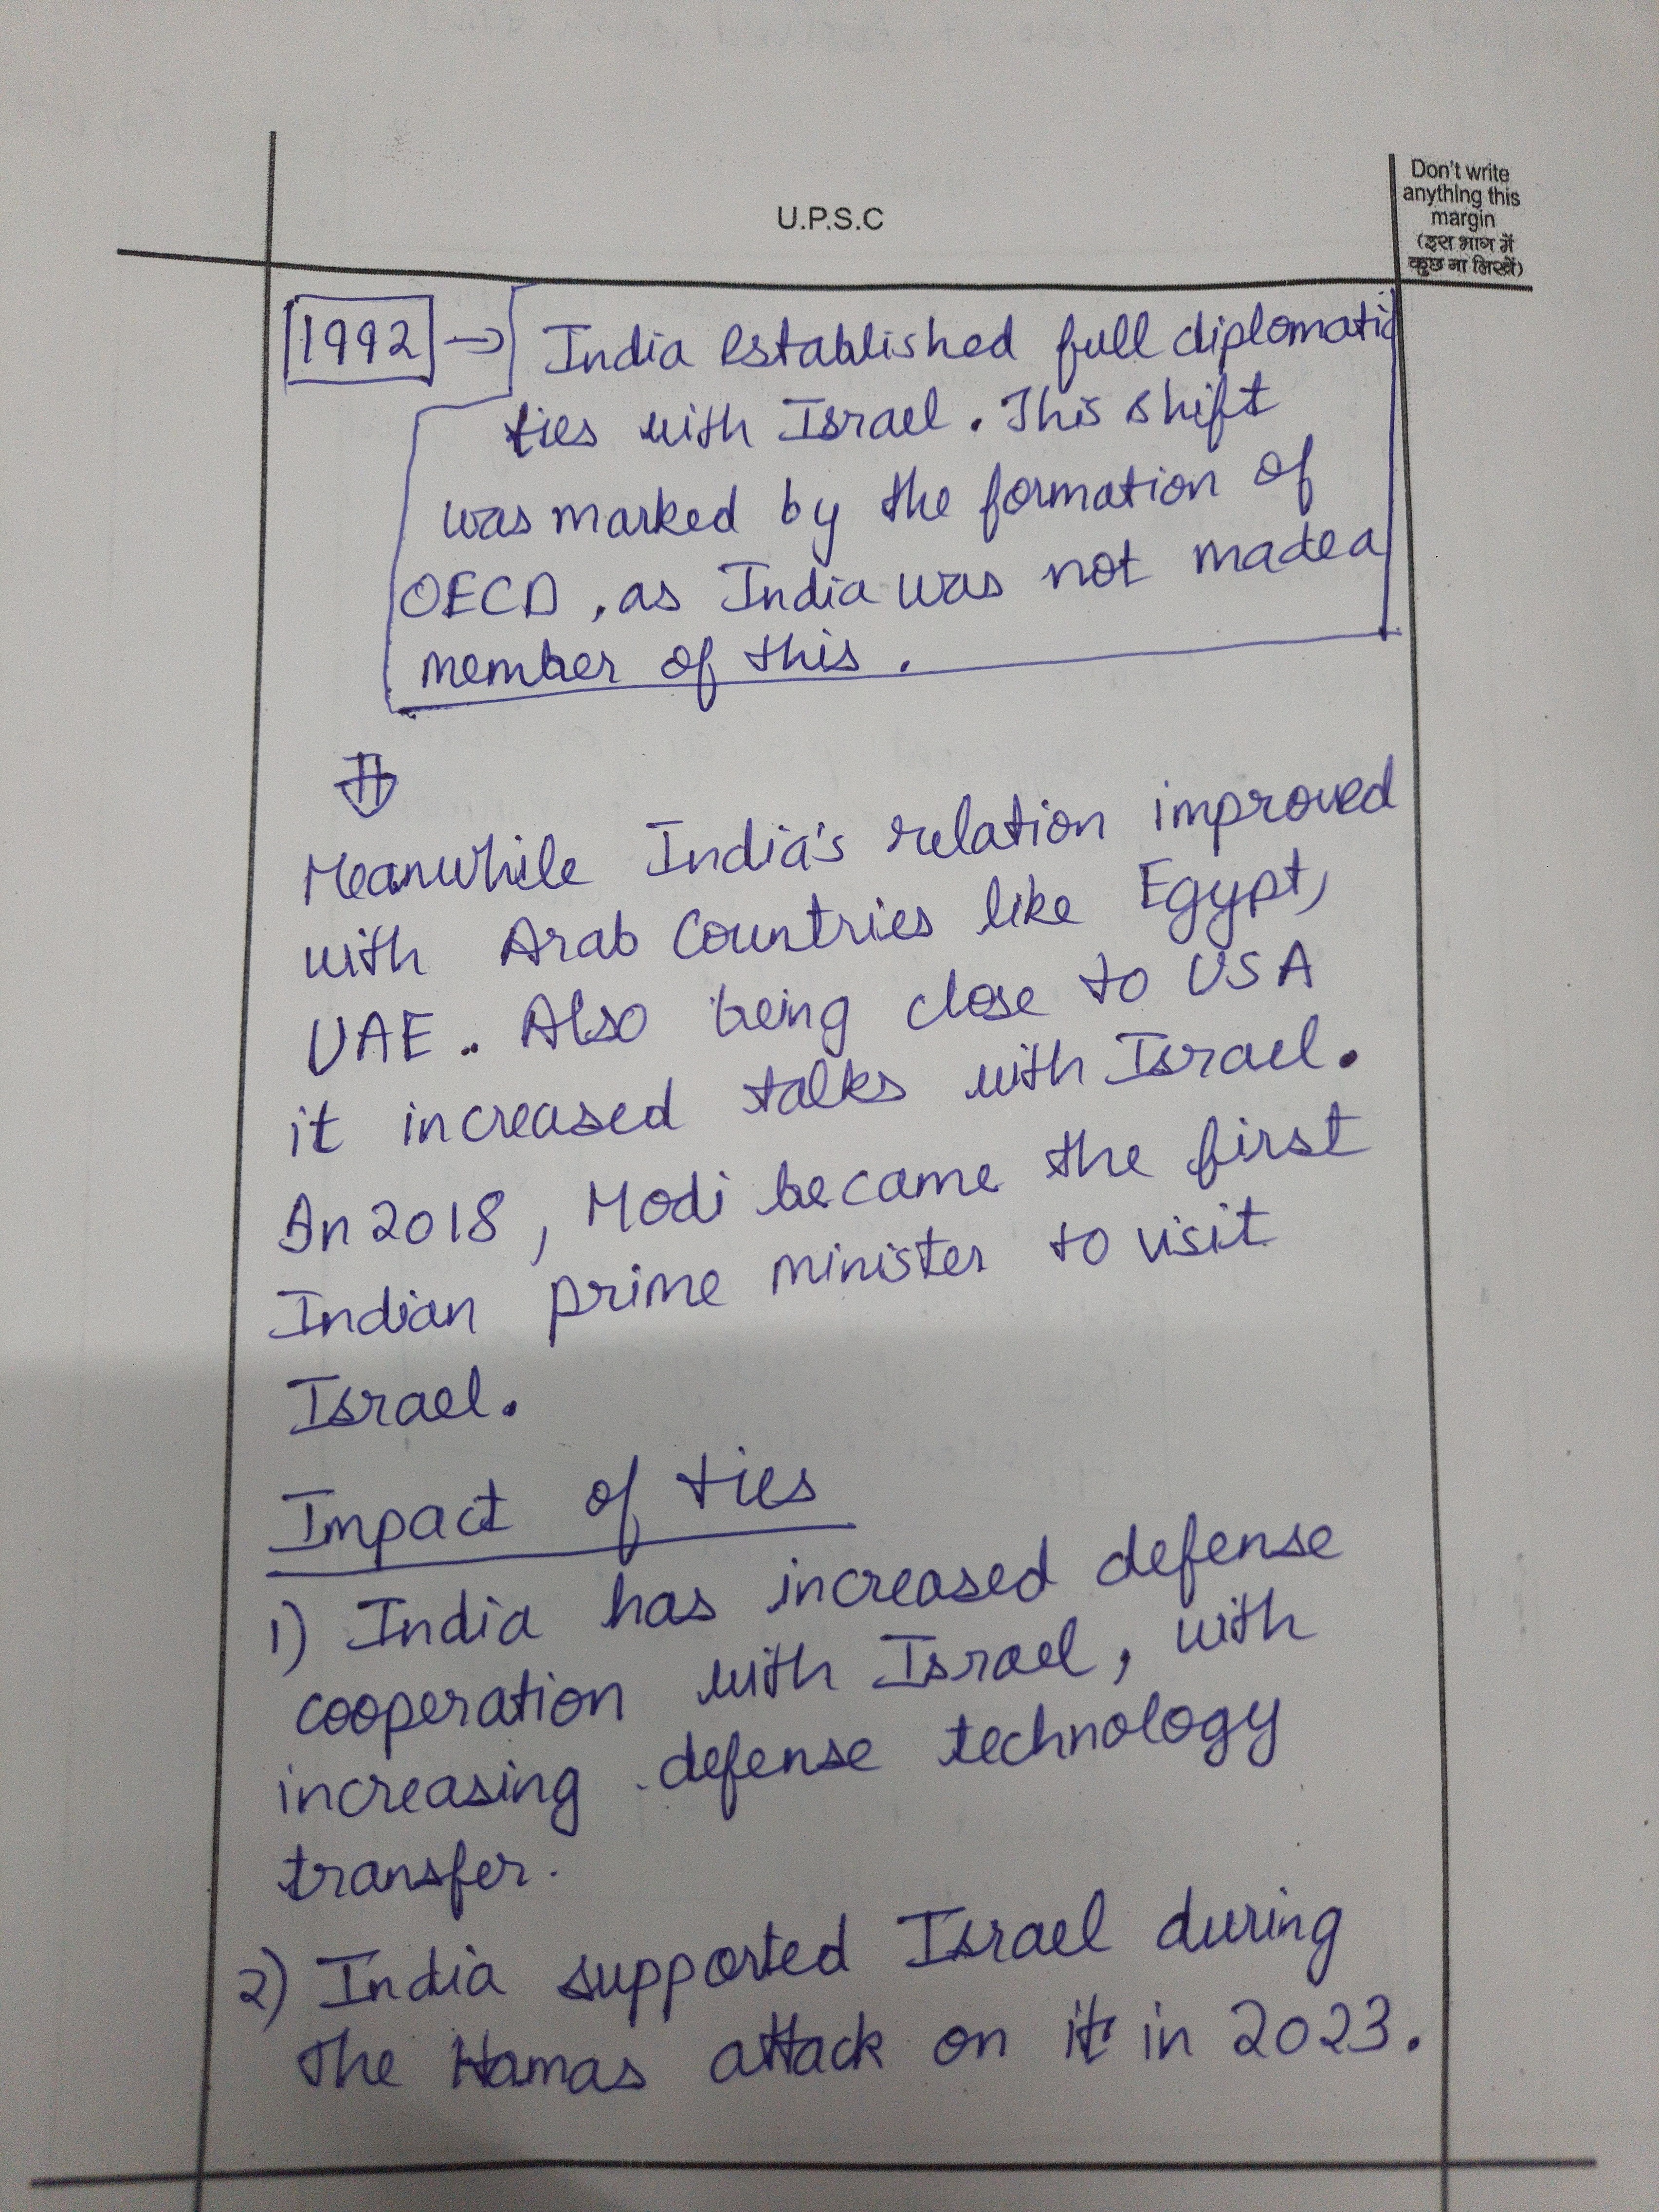 U.P.S.C
Don't write
anything this
margin
(इस भाग में
कुछ ना लिखें)
1992 → India established full diplomatic
ties with Israel. This shift
was marked by the formation of
OECD, as India was not made a
member of this.
Meanwhile India's relation improved
with Arab Countries like Egypt,
UAE. Also being close to USA
it increased talks with Israel.
In 2018, Modi became the first
Indian prime minister to visit
Israel.
Impact of ties
1) India has increased defense
cooperation with Israel, with
increasing defense technology
transfer.
2) India supported Israel during
the Hamas attack on it in 2023.